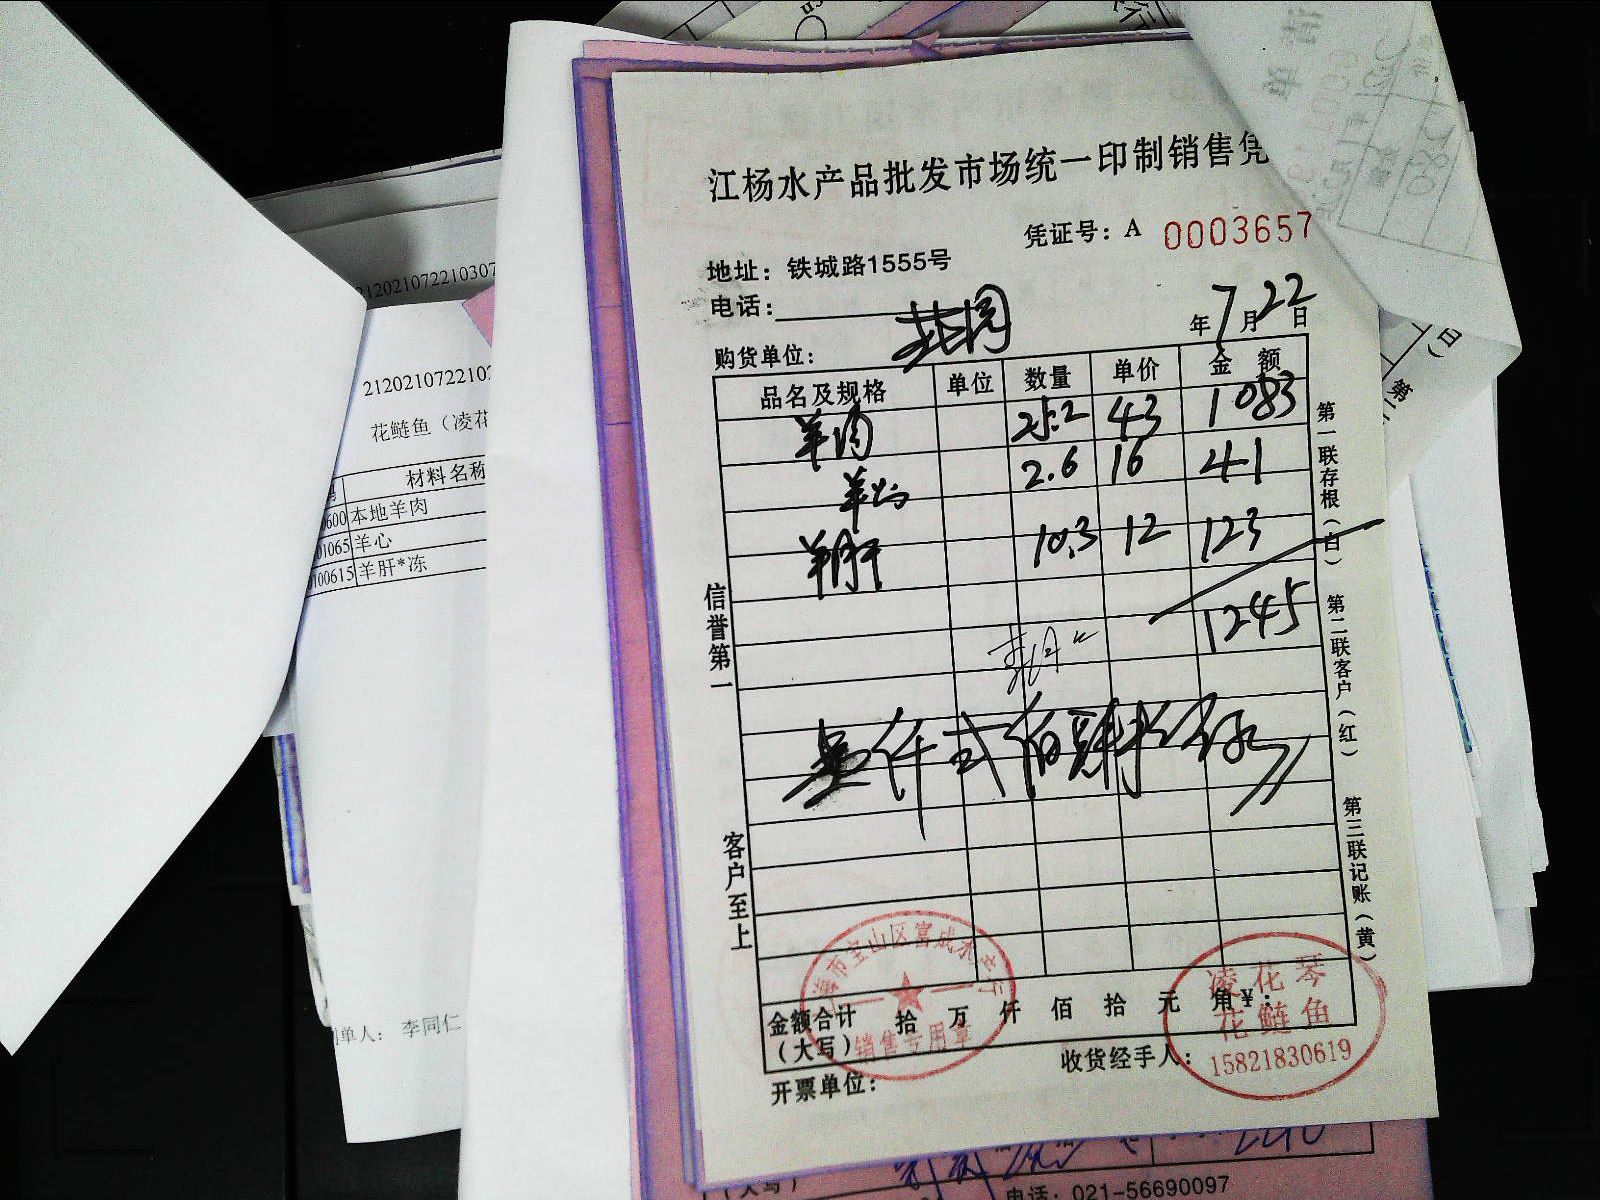 江杨水产品批发市场统一印制销售凭
凭证号：A 0003657
地址：铁城路1555号
电话：
年7月22日
购货单位：
品名及规格 单位 数量 单价 金额
羊肉 25.2 43 1083
羊心 2.6 16 41
羊肝 10.3 12 123
1245
壹仟弍佰肆拾伍
信誉第一
客户至上
第一联存根（白）
第二联客户（红）
第三联记账（黄）
金额合计（大写） 拾 万 仟 佰 拾 元 角 ¥：
收货经手人：
开票单位：
销售专用章
凌花琴
花鲢鱼
15821830619
212021072210307
花鲢鱼（凌花
材料名称
本地羊肉
1065 羊心
100615 羊肝*冻
单人： 李同仁
电话：021-56690097